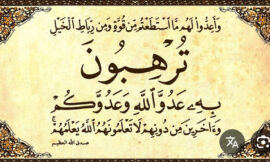 وَأَعِدُّوا لَهُم مَّا اسْتَطَعْتُم مِّن قُوَّةٍ وَمِن رِّبَاطِ الْخَيْلِ
تُرْهِبُونَ
بِهِ عَدُوَّ اللَّهِ وَعَدُوَّكُمْ
وَءَاخَرِينَ مِن دُونِهِمْ لَا تَعْلَمُونَهُمُ اللَّهُ يَعْلَمُهُمْ
صدق الله العظيم